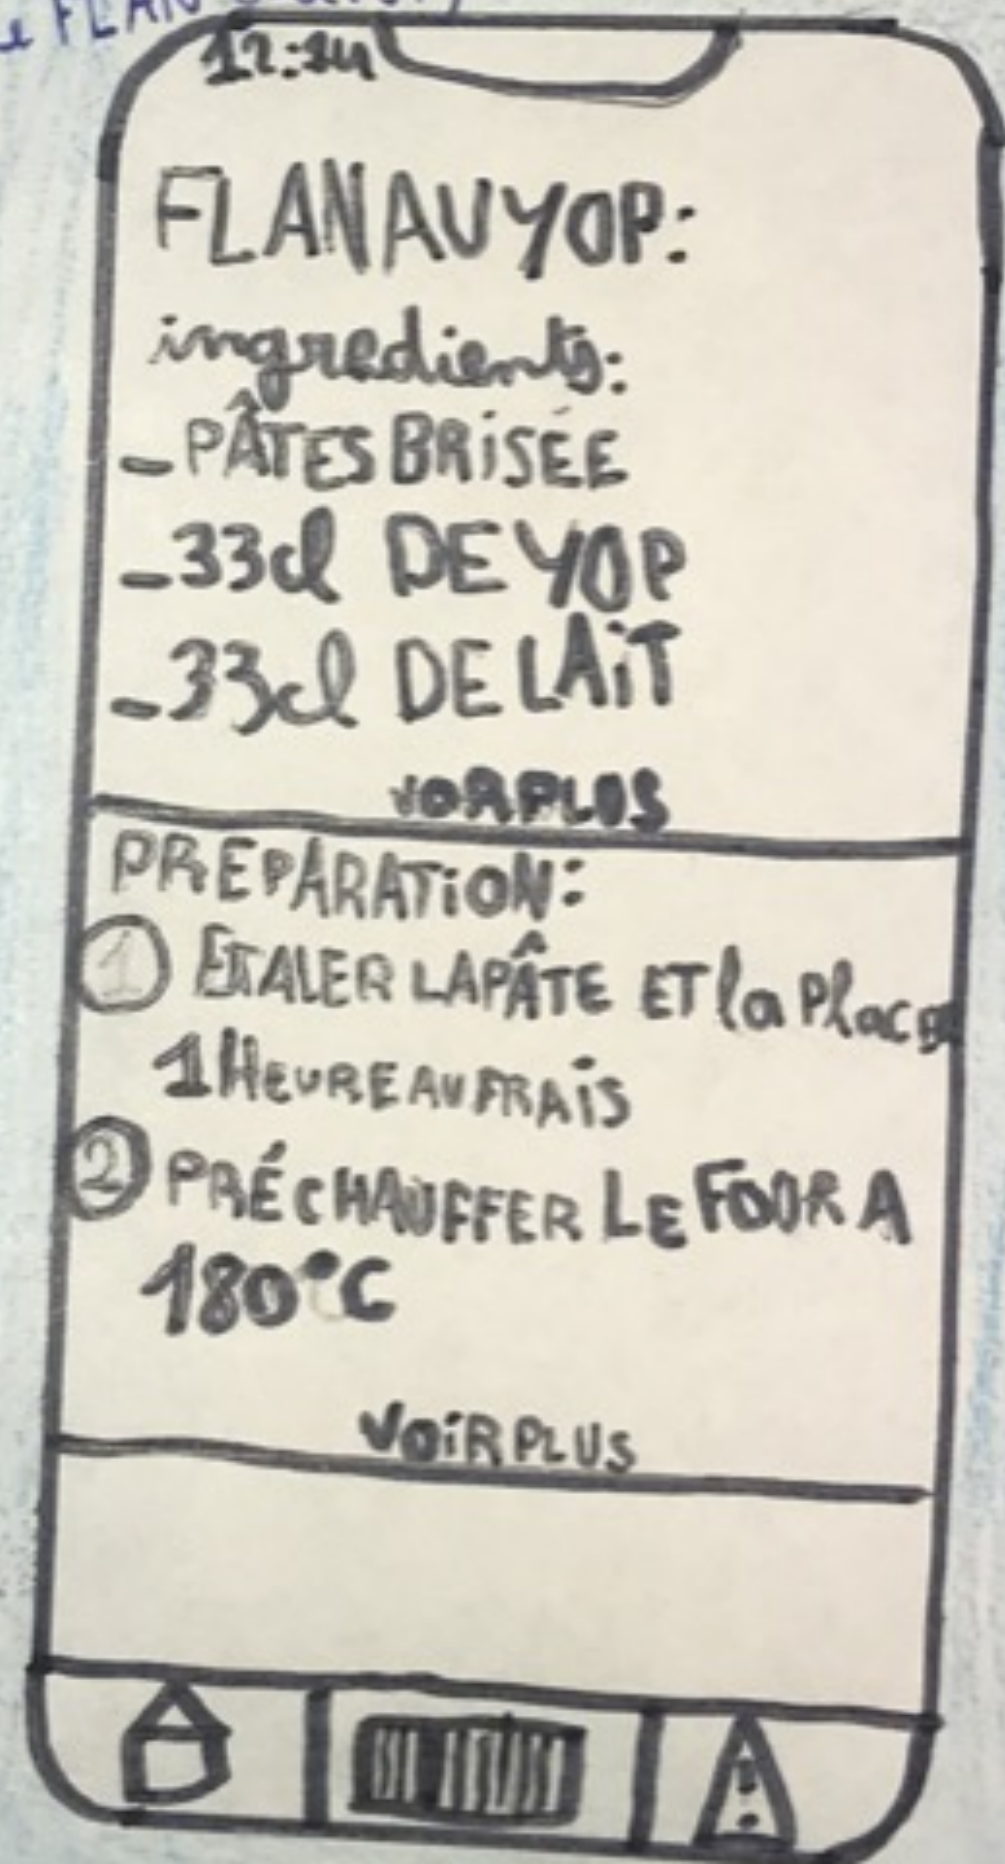 FLAN
12:24
FLAN AU YOP:
ingredients:
_PÂTES BRiSÉE
_33cl DE YOP
_33cl DE LAiT
VOIR PLUS
PREPARATiON:
1 ETALER LA PÂTE ET la Placer
1 HEURE AU FRAiS
2 PRÉCHAUFFER LE FOUR A
180°C
VOiR PLUS